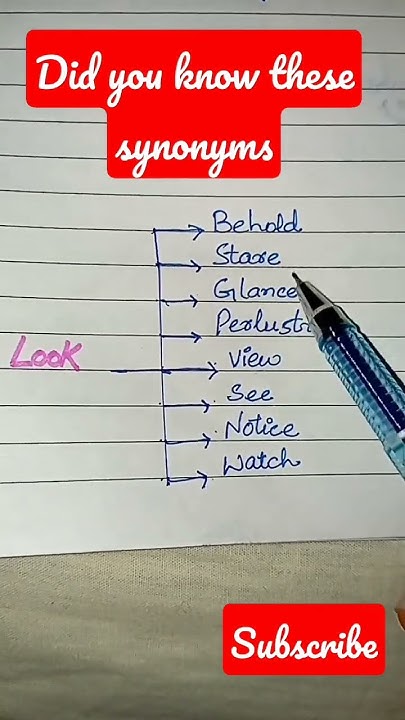 Did you know these
synonyms
Behold
Stare
Glance
View
Look
See
Notice
Watch
Subscribe